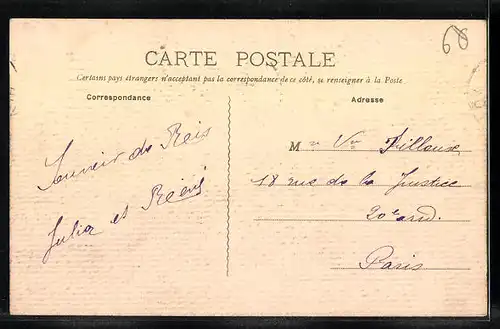 60
CARTE POSTALE
Certains pays étrangers n'acceptant pas la correspondance de ce côté, se renseigner à la Poste
Correspondance
Adresse
Souvenir de
Julia et
M me Vve
18 rue de la Justice
20e ard.
Paris